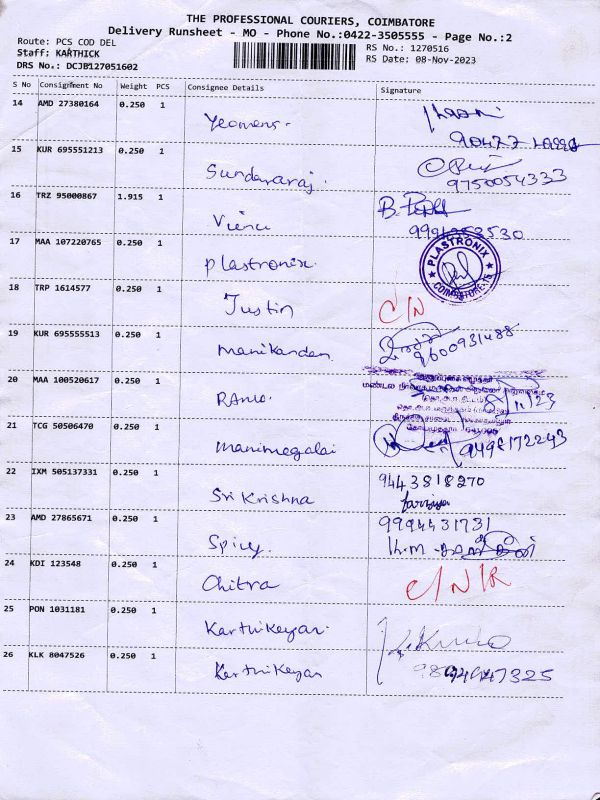 THE PROFESSIONAL COURIERS, COIMBATORE
Delivery Runsheet - MO - Phone No.:0422-3505555 - Page No.:2
Route: PCS COD DEL
Staff: KARTHICK
DRS No.: DCJB127051602
RS No.: 1270516
RS Date: 08-Nov-2023
S No Consignment No Weight PCS Consignee Details Signature
14 AMD 27380164 0.250 1 Yeomens.
15 KUR 695551213 0.250 1 Sundararaj.
9750054333
16 TRZ 95000867 1.915 1 B.
17 MAA 107220765 0.250 1 Plastronix.
PLASTRONIX
18 TRP 1614577 0.250 1 Justin C/N
19 KUR 695555513 0.250 1 Manikandan
9600931488
20 MAA 100520617 0.250 1
21 TCG 50506470 0.250 1 Manimegalai
9498172243
22 IXM 505137331 0.250 1 Sri Krishna 9443818270
23 AMD 27865671 0.250 1 Spicy. 9994431731
24 KDI 123548 0.250 1 Chitra C/N/R
25 PON 1031181 0.250 1 Karthikeyan.
26 KLK 8047526 0.250 1 Karthikeyan